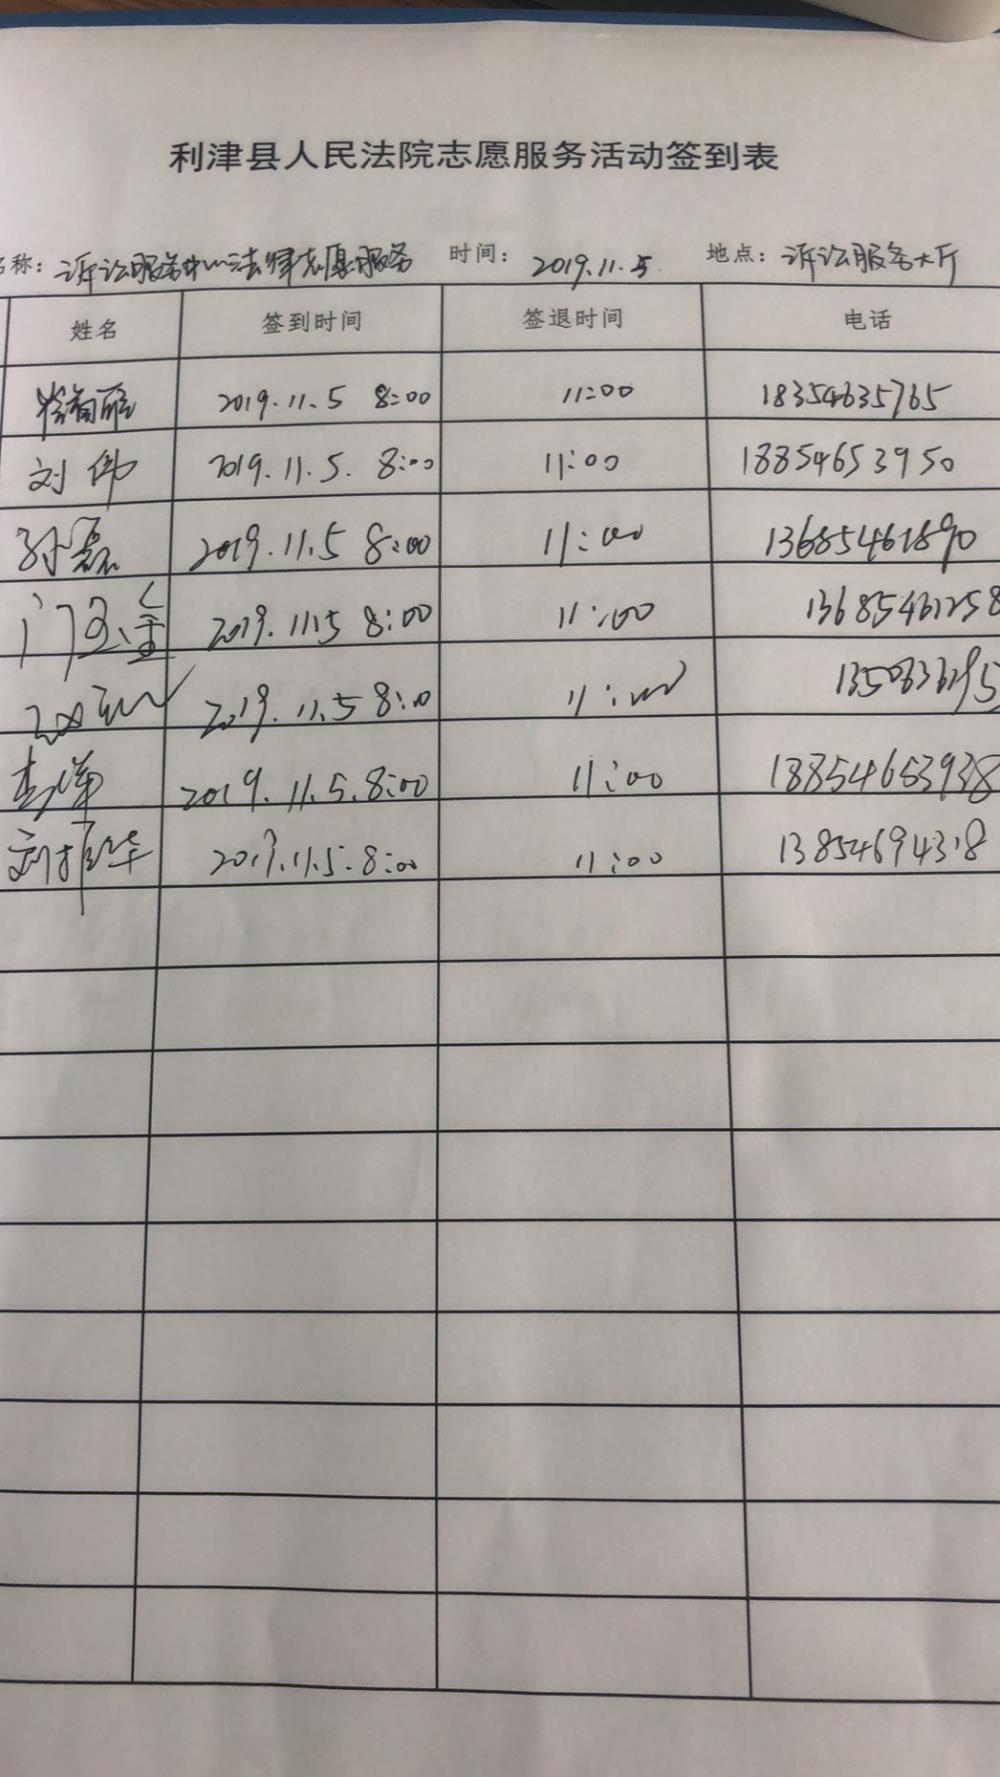 利津县人民法院志愿服务活动签到表
名称: 诉讼服务中心法律志愿服务 时间: 2019.11.5 地点: 诉讼服务大厅
姓名 签到时间 签退时间 电话
2019.11.5 8:00 11:00 18354635765
刘伟 2019.11.5. 8:00 11:00 18854653950
孙磊 2019.11.5 8:00 11:00 13685461890
门玉金 2019.11.5 8:00 11:00 13685461258
2019.11.5 8:00 11:00
2019.11.5.8:00 11:00 18854653938
刘振华 2019.11.5.8:00 11:00 13854694318